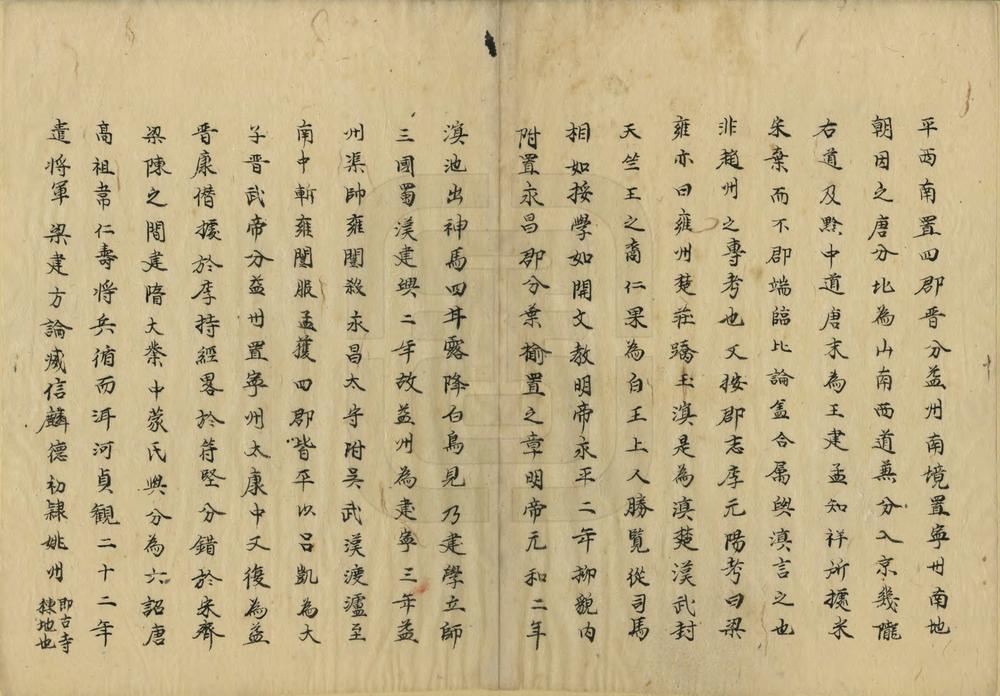 平西南置四郡晉分益州南境置寧州南地
朝因之唐分北為山南西道蕪分入京幾隴
右道及黔中道唐末為王建孟知祥所據宋
朱棄而不郡端臨比論盖合属與滇言之也
非趙州之專考也又按郡志李元陽考曰梁
雍亦曰雍州楚莊蹻王滇是為滇楚漢武封
天竺王之裔仁果為白王上人勝覽從司馬
相如授學如開文教明帝永平二年哀貌內
附置永昌郡分葉榆置之章明帝元和二年
滇池出神馬四甘露降白烏見乃建學立師
三國蜀漢建興二年故益州為建寧三年益
州渠帥雍闓殺永昌太守附吳武漢渡瀘至
南中斬雍闓服孟獲四郡皆平以呂凱為大
子晉武帝分益州置寧州太康中又復為益
晉康僭據於李持經畧於苻堅分錯於宋齊
梁陳之間建隋大業中蒙氏興分為六詔唐
高祖韋仁壽將兵循而洱河貞観二十二年
遣將軍梁建方論滅信麟德初隸姚州即古寺棘地也